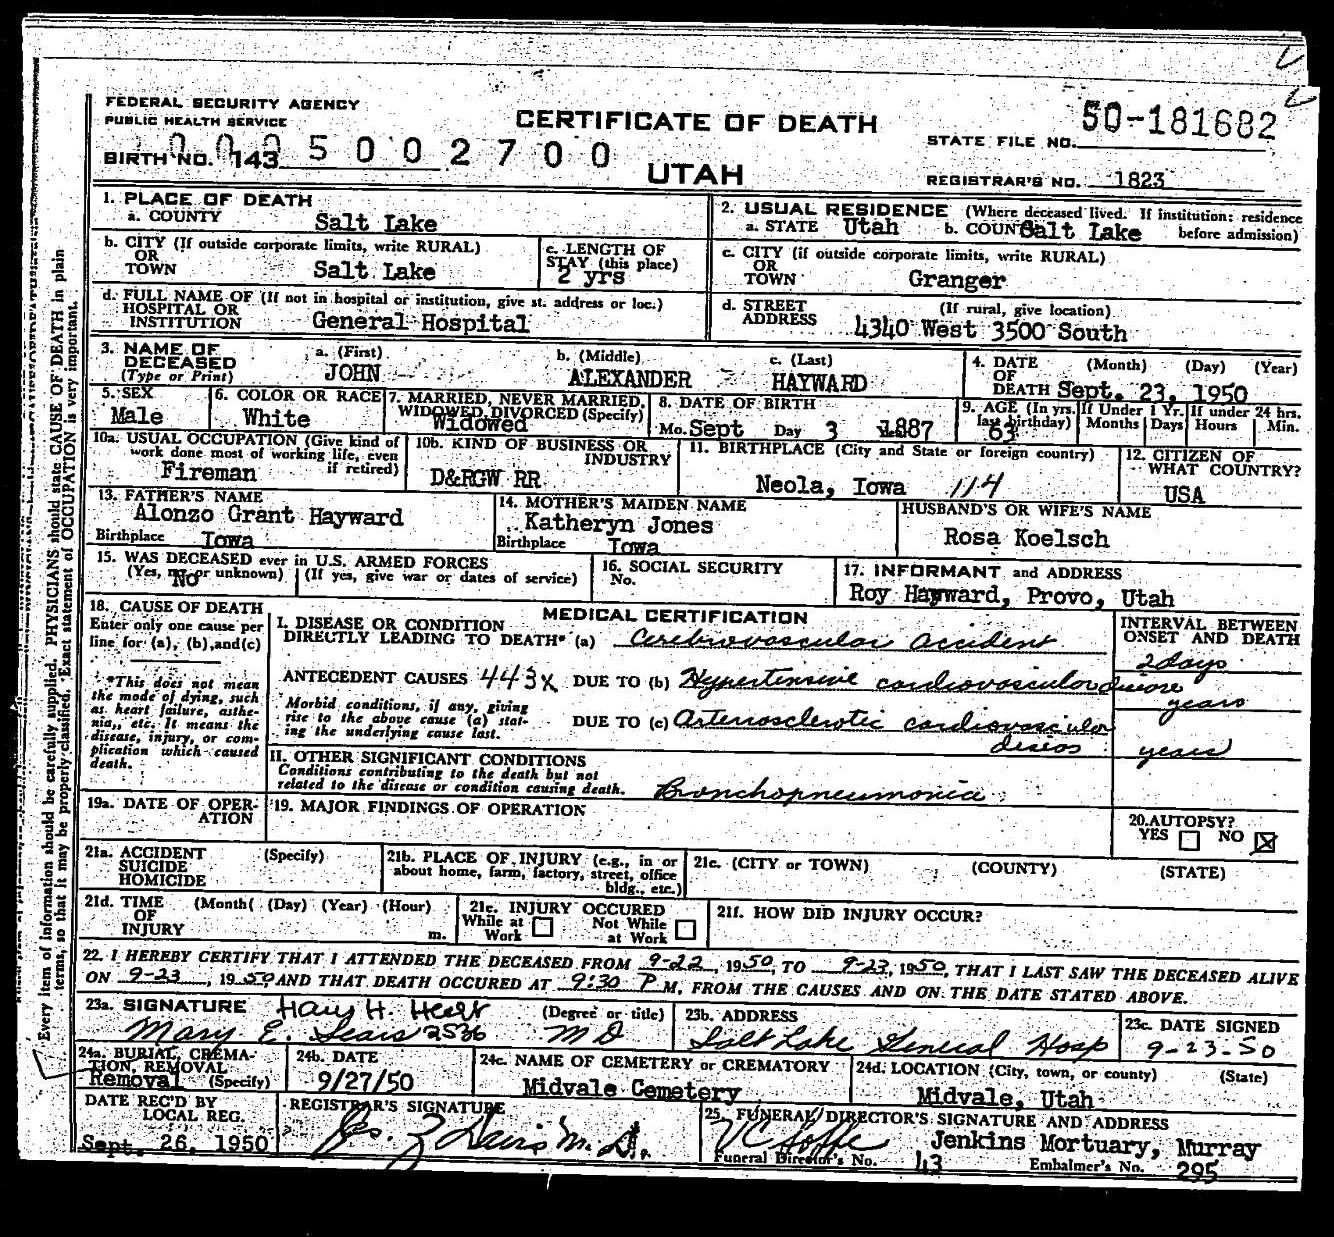 FEDERAL SECURITY AGENCY
PUBLIC HEALTH SERVICE
CERTIFICATE OF DEATH
STATE FILE NO. 50-181682
BIRTH NO. 143 0005002700
UTAH
REGISTRAR'S NO. 1823
1. PLACE OF DEATH
a. COUNTY Salt Lake
2. USUAL RESIDENCE (Where deceased lived. If institution: residence before admission)
a. STATE Utah b. COUNTY Salt Lake
b. CITY (If outside corporate limits, write RURAL)
OR
TOWN Salt Lake
c. LENGTH OF
STAY (this place)
2 yrs
c. CITY (if outside corporate limits, write RURAL)
OR
TOWN Granger
d. FULL NAME OF (If not in hospital or institution, give st. address or loc.)
HOSPITAL OR
INSTITUTION General Hospital
d. STREET (If rural, give location)
ADDRESS 4340 West 3500 South
3. NAME OF
DECEASED
(Type or Print)
a. (First) JOHN
b. (Middle) ALEXANDER
c. (Last) HAYWARD
4. DATE (Month) (Day) (Year)
OF
DEATH Sept. 23, 1950
5. SEX
Male
6. COLOR OR RACE
White
7. MARRIED, NEVER MARRIED,
WIDOWED, DIVORCED (Specify)
Widowed
8. DATE OF BIRTH
Mo. Sept Day 3 1887
9. AGE (In yrs. last birthday) 63
If Under 1 Yr.
Months Days
If under 24 hrs.
Hours Min.
10a. USUAL OCCUPATION (Give kind of
work done most of working life, even
if retired)
Fireman
10b. KIND OF BUSINESS OR
INDUSTRY
D&RGW RR
11. BIRTHPLACE (City and State or foreign country)
Neola, Iowa 114
12. CITIZEN OF
WHAT COUNTRY?
USA
13. FATHER'S NAME
Alonzo Grant Hayward
Birthplace Iowa
14. MOTHER'S MAIDEN NAME
Katheryn Jones
Birthplace Iowa
HUSBAND'S OR WIFE'S NAME
Rosa Koelsch
15. WAS DECEASED ever in U.S. ARMED FORCES
(Yes, no or unknown) (If yes, give war or dates of service)
No
16. SOCIAL SECURITY
No.
17. INFORMANT and ADDRESS
Roy Hayward, Provo, Utah
18. CAUSE OF DEATH
Enter only one cause per
line for (a), (b), and (c)
*This does not mean
the mode of dying, such
as heart failure, asthe-
nia, etc. It means the
disease, injury, or com-
plication which caused
death.
MEDICAL CERTIFICATION
I. DISEASE OR CONDITION
DIRECTLY LEADING TO DEATH* (a) Cerebrovascular accident
INTERVAL BETWEEN
ONSET AND DEATH
2 days
ANTECEDENT CAUSES 443x DUE TO (b) Hypertensive cardiovascular disease
years
Morbid conditions, if any, giving
rise to the above cause (a) stat-
ing the underlying cause last.
DUE TO (c) Arteriosclerotic cardiovascular
diseas years
II. OTHER SIGNIFICANT CONDITIONS
Conditions contributing to the death but not
related to the disease or condition causing death.
Bronchopneumonia
19a. DATE OF OPER-
ATION
19. MAJOR FINDINGS OF OPERATION
20. AUTOPSY?
YES NO
21a. ACCIDENT (Specify)
SUICIDE
HOMICIDE
21b. PLACE OF INJURY (e.g., in or
about home, farm, factory, street, office
bldg., etc.)
21c. (CITY or TOWN) (COUNTY) (STATE)
21d. TIME (Month( (Day) (Year) (Hour)
OF
INJURY m.
21e. INJURY OCCURED
While at Work
Not While at Work
21f. HOW DID INJURY OCCUR?
22. I HEREBY CERTIFY THAT I ATTENDED THE DECEASED FROM 9-22, 1950, TO 9-23, 1950, THAT I LAST SAW THE DECEASED ALIVE
ON 9-23, 1950 AND THAT DEATH OCCURED AT 9:30 P M, FROM THE CAUSES AND ON THE DATE STATED ABOVE.
23a. SIGNATURE (Degree or title)
Mary E. Sears 2536 M D
23b. ADDRESS
Salt Lake General Hosp
23c. DATE SIGNED
9-23-50
24a. BURIAL, CREMA-
TION, REMOVAL
Removal (Specify)
24b. DATE
9/27/50
24c. NAME OF CEMETERY or CREMATORY
Midvale Cemetery
24d. LOCATION (City, town, or county) (State)
Midvale, Utah
DATE REC'D BY
LOCAL REG.
Sept. 26, 1950
REGISTRAR'S SIGNATURE
Davis M. D.
25. FUNERAL DIRECTOR'S SIGNATURE AND ADDRESS
Jenkins Mortuary, Murray
Funeral Director's No. 43 Embalmer's No. 295
Every item of information should be carefully supplied. PHYSICIANS should state CAUSE OF DEATH in plain
terms, so that it may be properly classified. Exact statement of OCCUPATION is very important.